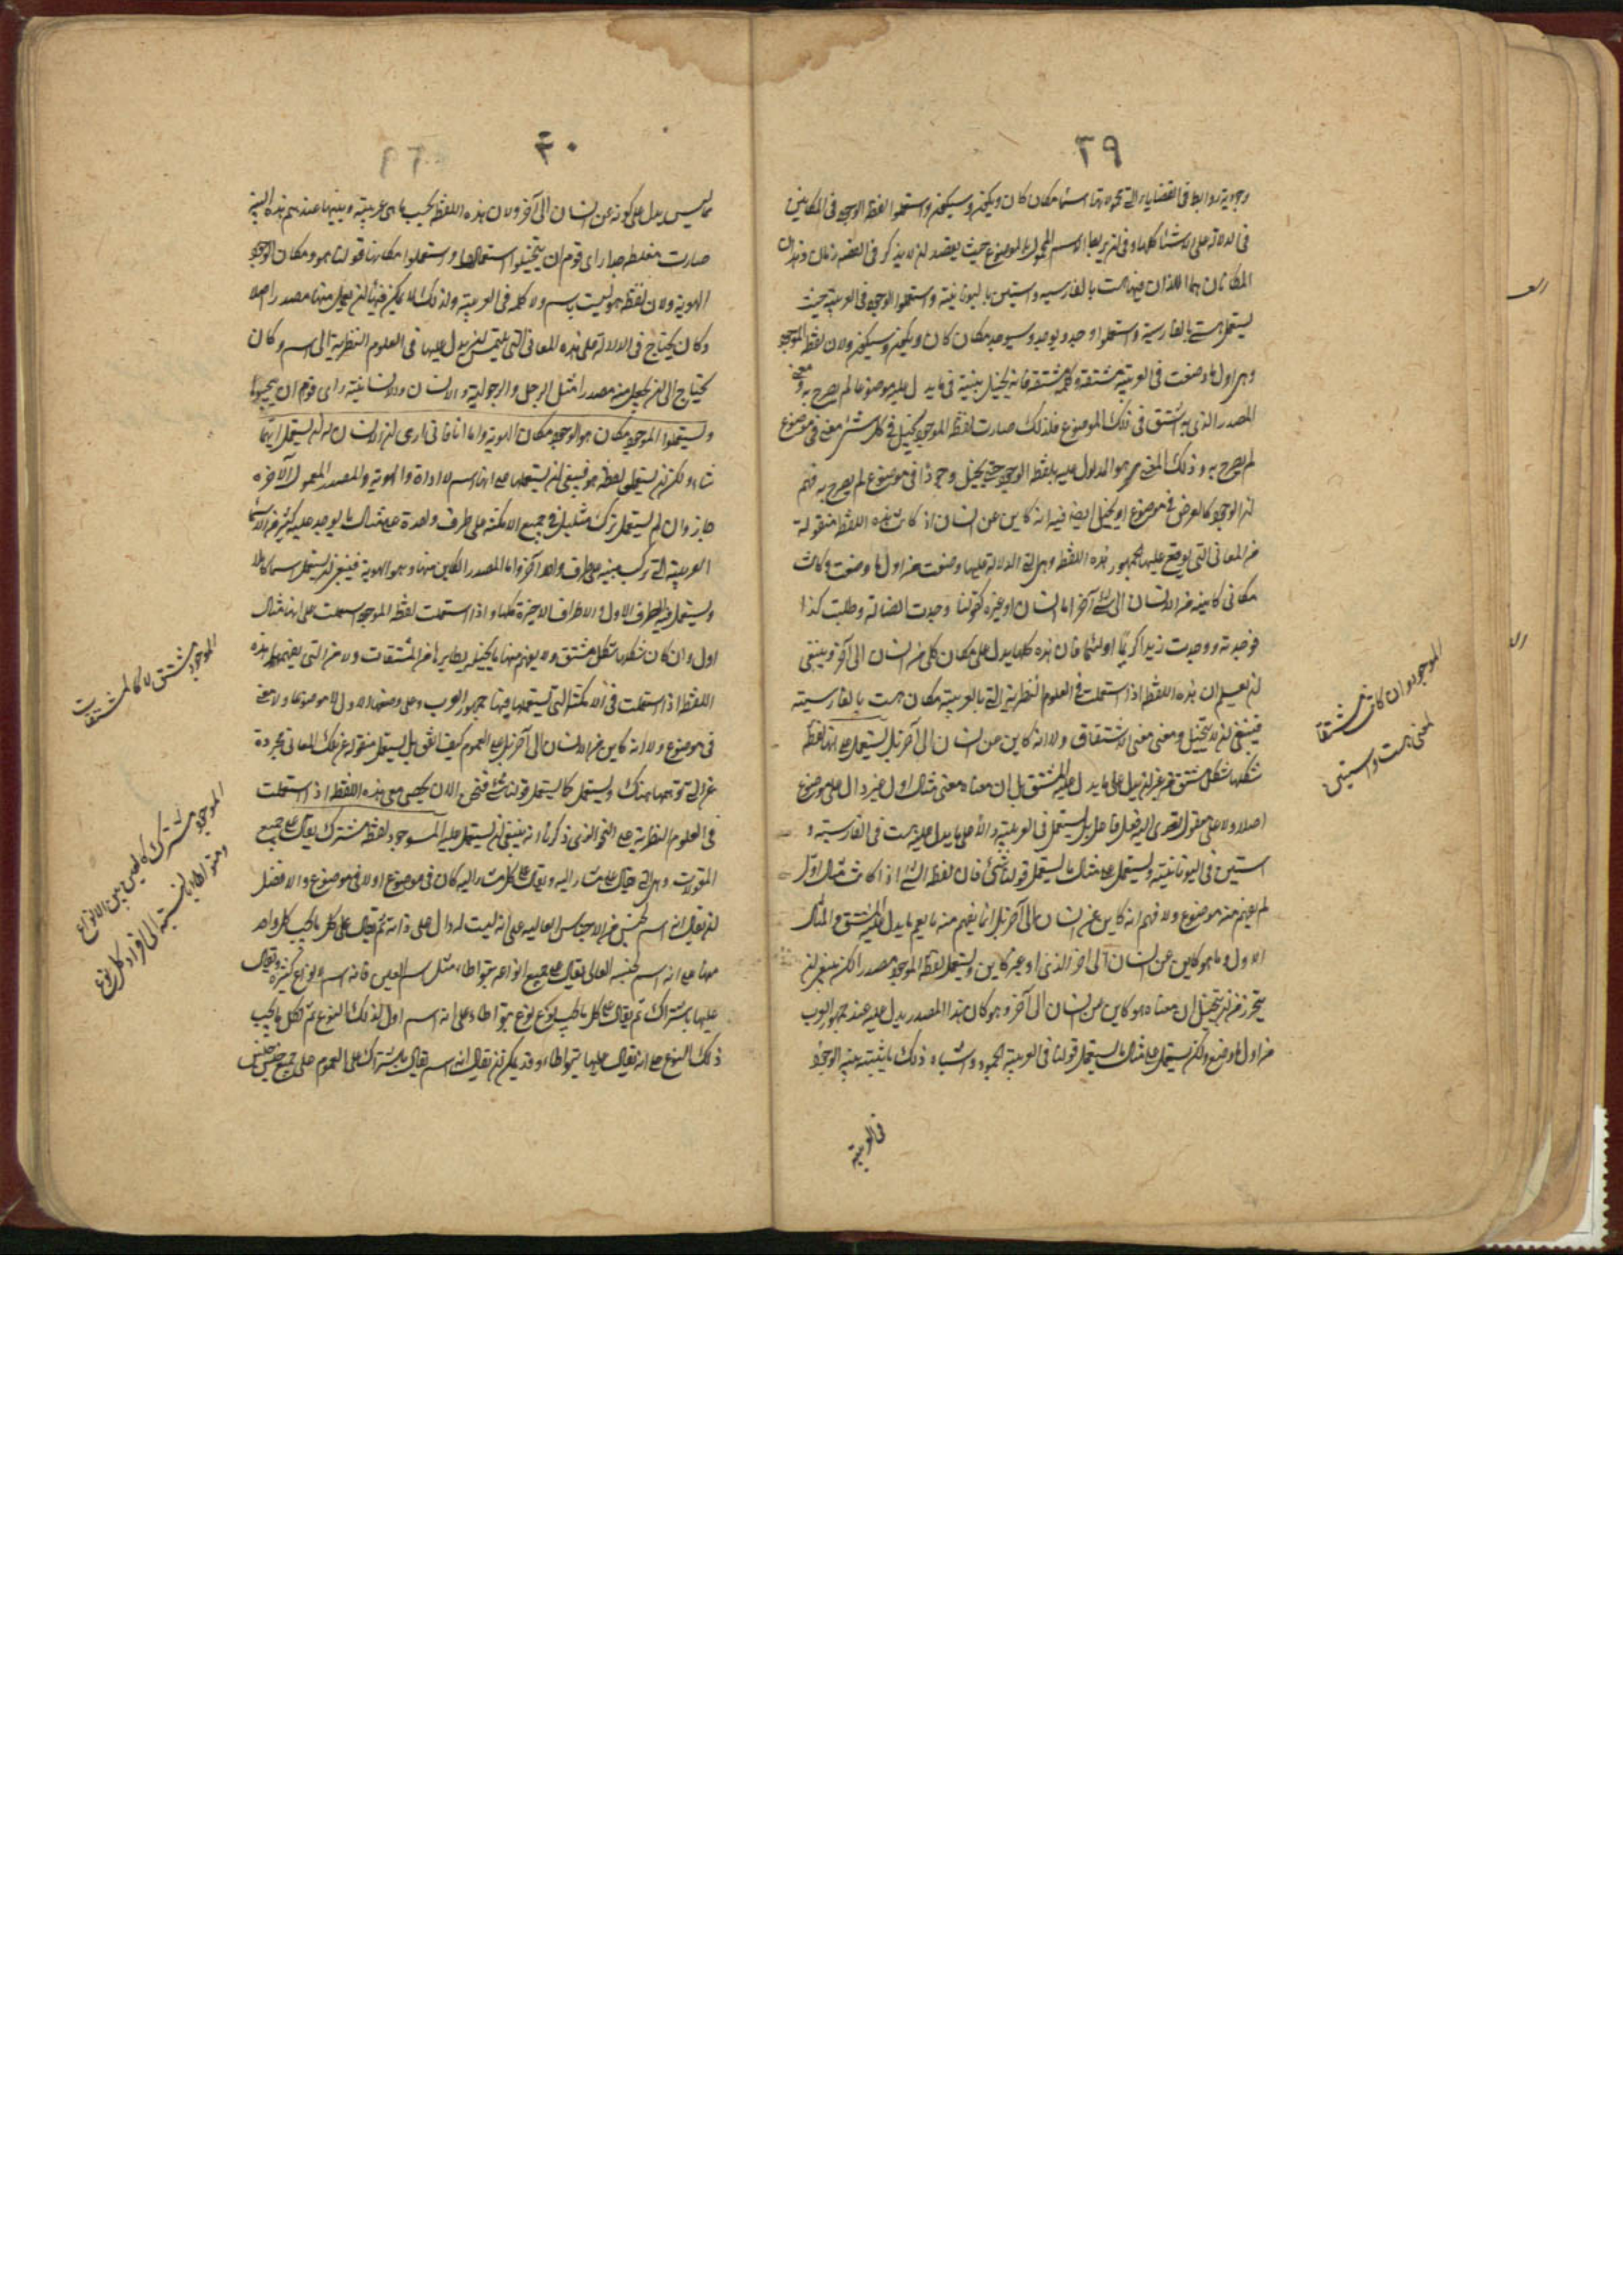 ٣٩
وجودية روابط فى القضايا التى محمولاتها اسما مكان كان ويكون وسيكون واستعملوا لفظ الوجود فى المكانين
فى الدلالة على الاشيا كلها وفى ان يربطا الاسم المحمول بالموضوع حيث يقصد ان لا يذكر فى القضية زمان وهذان
المكانان هما اللذان فيهما هست بالفارسية واستين باليونانية واستعملوا الوجود فى العربية حيث
يستعمل هست بالفارسية واستعملوا وجد ويوجد وسيوجد مكان كان ويكون وسيكون ولان لفظة الموجود
وهى اول ما وضعت فى العربية مشتقة وكل مشتقة فانه يخيل ببنيته فى ما يدل عليه موضوعا لم يصرح به ومعنى
المصدر الذى منه اشتق فى ذلك الموضوع فلذلك صارت لفظة الموجود تخيل فى كل شئ معنى فى موضوع
لم يصرح به وذلك المعنى هو المدلول عليه بلفظ الوجود حتى يخيل وجودا فى موضوع لم يصرح به فهم
ان الوجود كالعرض فى موضوع او يخيل ايضا فيه انه كاين عن انسان اذ كانت هذه اللفظة منقولة
من المعانى التى يوقع عليها الجمهور هذه اللفظة وهى التى الدلالة عليها وضعت من اول ما وضعت وكانت
معانى كاينة من الانسان الى شئ آخر اما انسان او غيره كقولنا وجدت الضالة وطلبت كذا
فوجدته ووجدت زيدا كريما او لئيما فان هذه كلها يدل على معان كل من انسان الى آخر وينبغى
ان يعلم ان هذه اللفظة اذا استعملت فى العلوم النظرية التى بالعربية مكان هست بالفارسية
فينبغى ان لا يتخيل ومعنى معنى الاشتقاق ولا انه كاين من انسان الى آخر بل يستعمل على انها لفظة
شكلها شكل مشتق من غير ان يدل على ما يدل عليه المشتق بل ان معناه معنى مثال اول غير دال على موضوع
اصلا ولا على مفعول تعدى اليه فعل فاعل بل يستعمل فى العربية دالا على ما يدل عليه هست فى الفارسية و
استين فى اليونانية ويستعمل على مثال ما يستعمل قولنا شئ فان لفظ الشئ اذا كانت مثالا اول
لم يفهم منه موضوع ولا فهم انه كاين عن انسان الى آخر بل انما يفهم منه ما يعم ما يدل عليه المشتق والمثال
الاول وما هو كاين عن انسان الى اخر الذى او غير كاين ويستعمل لفظ الموجود مصدرا لكن ينبغى ان
يتحرز من ان يتخيل ان معناه هو كاين من انسان الى آخر وهو كان هذا المصدر يدل عليه عند جمهور العرب
من اول ما وضع ولكن يستعمل على مثال ما يستعمل قولنا فى العربية الجمود واشباه ذلك ما بنيته بنية الوجود
فى العربية
الموجود وان كان مشتقا
لمعنى هست واستين
٤٠
مما ليس يدل على كونه عن انسان الى آخر ولان هذه اللفظة بحسب ما هى عربية وبنيتها عندهم هذه البنية
صارت مغلطة جدا راى قوم ان يتجنبوا استعمالها واستعملوا مكانها قولنا هو ومكان الوجود
الهوية ولان لفظ هو ليست باسم ولا كلمة فى العربية ولذلك لا يمكن فيها ان يجعل منها مصدر اصلا
وكان يحتاج فى الدلالة على هذه المعانى التى يلتمس ان يدل عليها فى العلوم النظرية الى اسم وكان
يحتاج الى ان يجعل منه مصدرا مثل الرجل والرجولية والانسان والانسانية راى قوم ان يتجنبوها
ويستعملوا الموجود مكان هو والوجود مكان الهوية واما انا فانى ارى ان الانسان له ان يستعمل ايهما
شاء ولكن ان يستعمل لفظة هو فينبغى ان يستعملها على انها اسم لا اداة والهوية والمصدر المعمول الآخره
جاز وان لم يستعمل ترك مثله فى جميع الامكنة على طرف واحدة على مثال ما يوجد عليه كثير من الاسما
العربية التى تركت مبنية على طرف واحد آخر واما المصدر الكاين منها وهو الهوية فينبغى ان يستعمل اسما كاملا
ويستعمل فيه الطرف الاول والاطراف الاخيرة كلها واذا استعملت لفظ الموجود استعملت على انها مثال
اول وان كان شكلها شكل مشتق ولا يفهم منها ما يخيله نظايرها من المشتقات ولا من التى يفهمها هذه
اللفظة اذا استعملت فى الامكنة التى يستعملها فيها جمهور العرب وعلى وضعها الاول لا موضوعا ولا معنى
فى موضوع ولا انه كاين من الانسان الى آخر بل على العموم كيف اتفق بل يستعمل منقولة عن تلك المعانى مجردة
عن التى توهمها هناك ويستعمل كما يستعمل قولنا شئ فنحن الان نحصى معنى هذه اللفظة اذا استعملت
فى العلوم النظرية على النحو الذى ذكرنا انه ينبغى ان يستعمل عليه الموجود لفظة مشترك يقال على جميع
المقولات وهى التى تقال على مشار اليه ويقال على كل مشار اليه كان فى موضوع اولا فى موضوع والافضل
ان يقال انه اسم لجنس جنس من الاجناس العالية على انه ليست له دال على ذاته ثم يقال على كل ما تحت كل واحد
منها على انه اسم لجنسه العالى يقال على جميع انواعه بتواطا مثل اسم العين فانه اسم لانواع كثيرة ويقال
عليها باشتراك ثم يقال على كل ما تحت نوع نوع بتواطا على انه اسم اول لذلك النوع ثم لكل ما تحت
ذلك النوع على انه يقال عليها بتواطا وقد يمكن ان يقال انه اسم يقال باشتراك على العموم على جميع جنس جنس
الموجود مشتق لا كالمشتقات
الموجود مشترك كالعين بين الانواع
ومتواطا بالنسبة الى افراد كل نوع